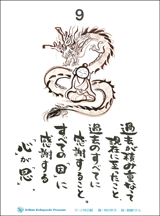 9
過去が積み重なって
現在に至ったこと
過去のすべてに
感謝する
すべての「因」に
感謝する
心が「恩」